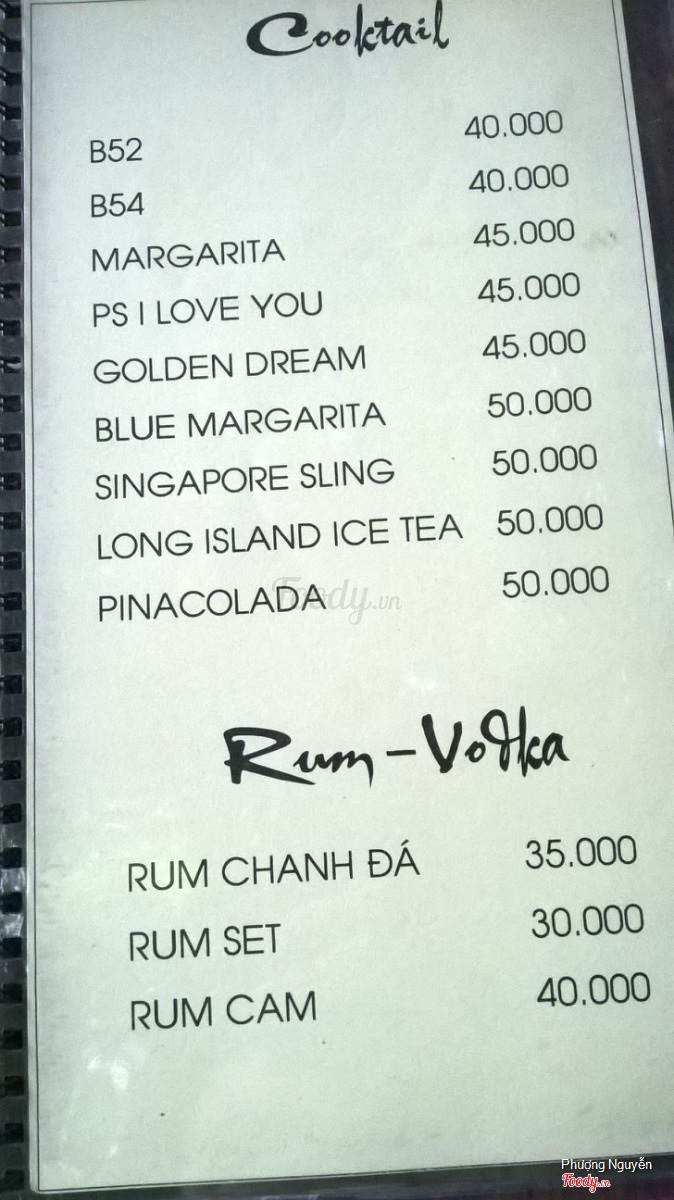 Cooktail
B52 40.000
B54 40.000
MARGARITA 45.000
PS I LOVE YOU 45.000
GOLDEN DREAM 45.000
BLUE MARGARITA 50.000
SINGAPORE SLING 50.000
LONG ISLAND ICE TEA 50.000
PINACOLADA 50.000
Foody.vn
Rum - Vodka
RUM CHANH ĐÁ 35.000
RUM SET 30.000
RUM CAM 40.000
Phượng Nguyễn
Foody.vn